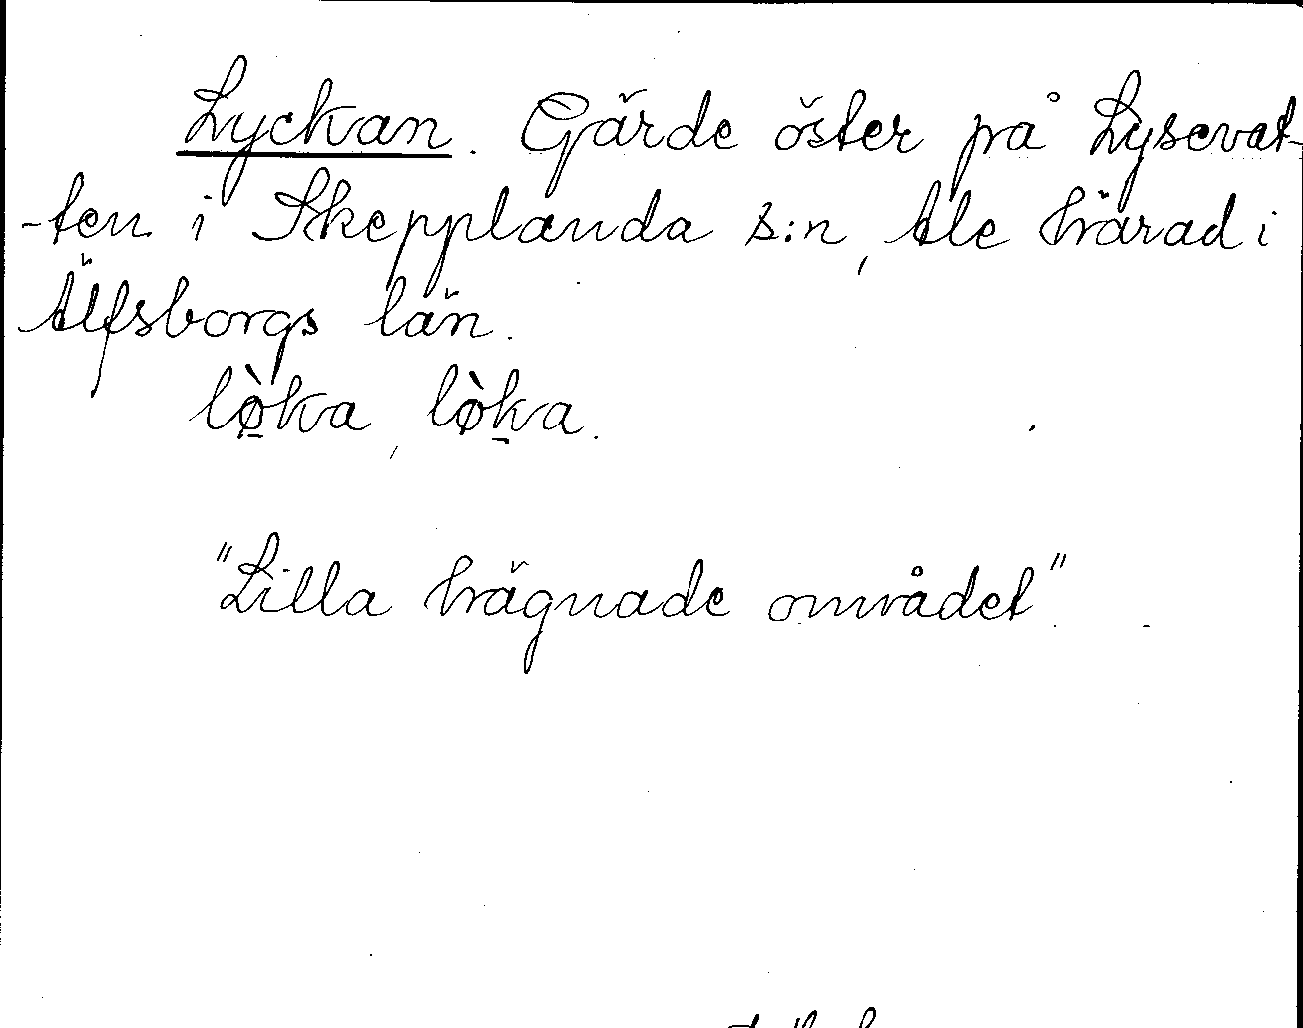 Lyckan. Gärde öster på Lysevat-
-ten i Skepplanda s:n, Ale härad i
Älfsborgs län.
lø̱̀ka, lø̀ḵa.
"Lilla hägnade området".